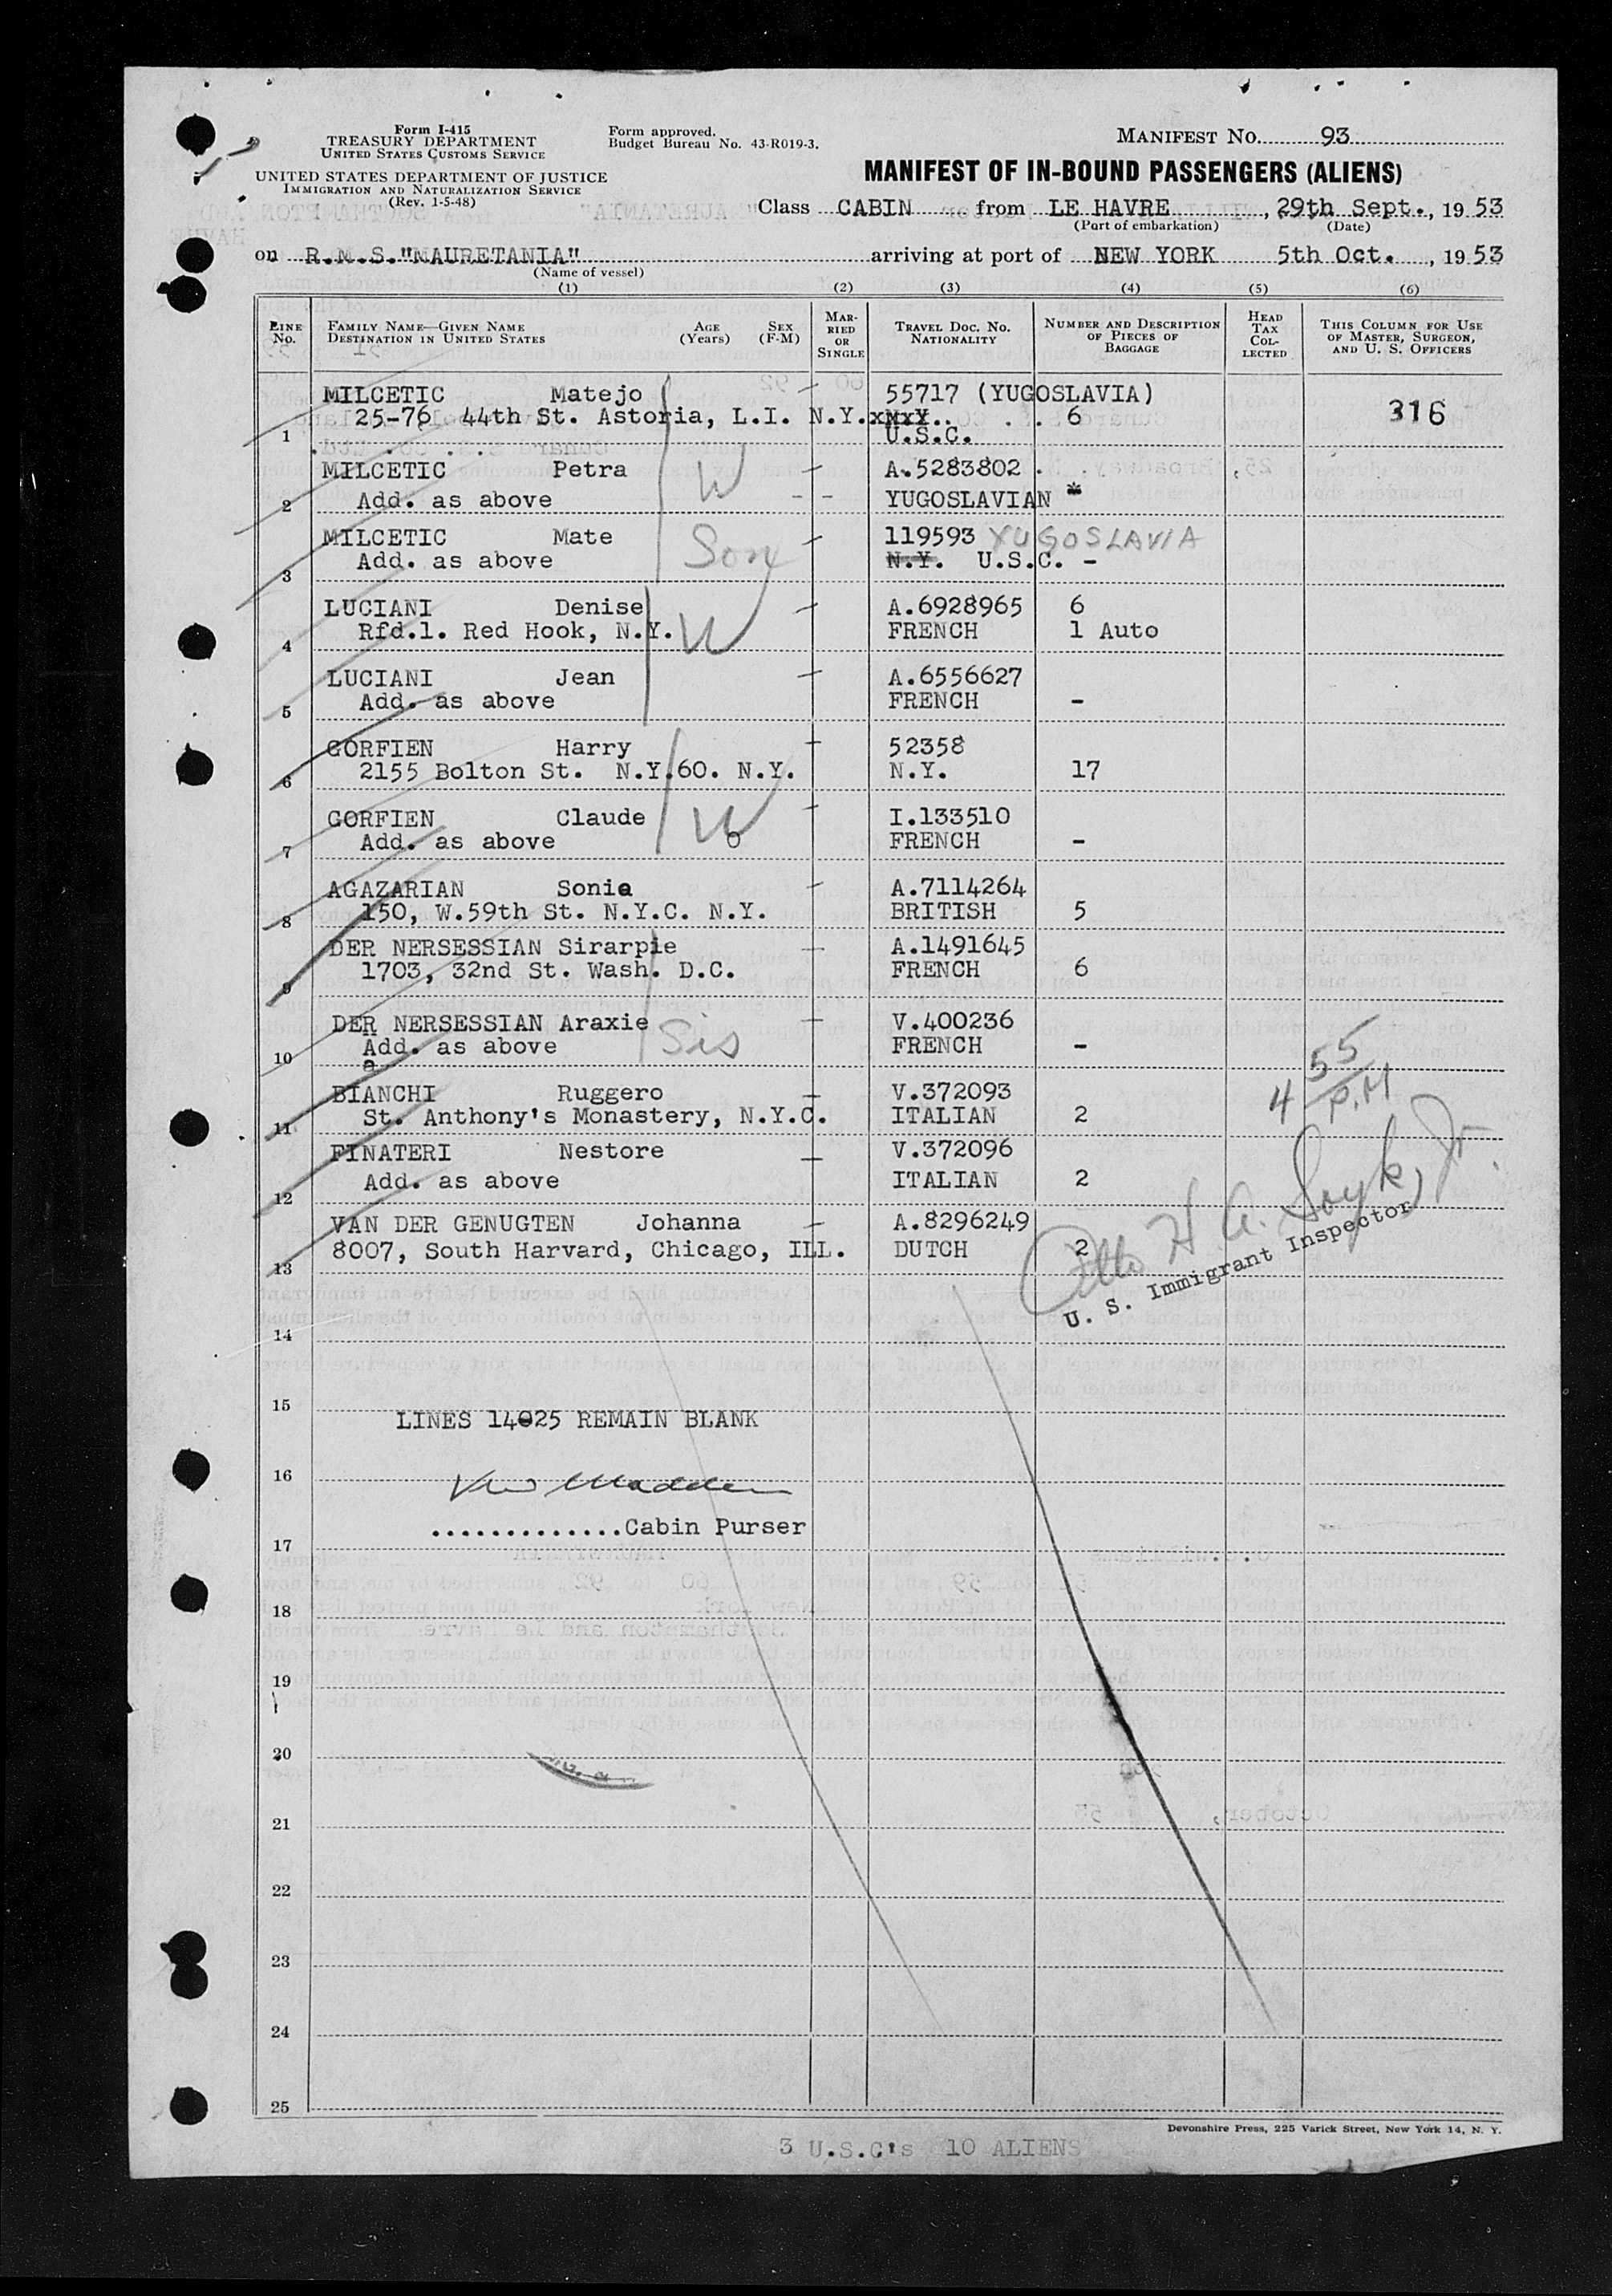 Form I-415
TREASURY DEPARTMENT
UNITED STATES CUSTOMS SERVICE
UNITED STATES DEPARTMENT OF JUSTICE
IMMIGRATION AND NATURALIZATION SERVICE
(Rev. 1-5-48)
Form approved.
Budget Bureau No. 43-R019-3.
MANIFEST No. 93
MANIFEST OF IN-BOUND PASSENGERS (ALIENS)
Class CABIN from LE HAVRE, 29th Sept., 1953
(Port of embarkation) (Date)
on R.M.S."MAURETANIA" arriving at port of NEW YORK 5th Oct., 1953
(Name of vessel)
(1) (2) (3) (4) (5) (6)
LINE No. FAMILY NAME—GIVEN NAME DESTINATION IN UNITED STATES AGE (Years) SEX (F-M) MARRIED OR SINGLE TRAVEL DOC. NO. NATIONALITY NUMBER AND DESCRIPTION OF PIECES OF BAGGAGE HEAD TAX COLLECTED THIS COLUMN FOR USE OF MASTER, SURGEON, AND U. S. OFFICERS
MILCETIC Matejo 55717 (YUGOSLAVIA)
1 25-76 44th St. Astoria, L.I. N.Y. 6 316
U.S.C.
MILCETIC Petra W A.5283802
2 Add. as above -- YUGOSLAVIAN
MILCETIC Mate Son 119593 YUGOSLAVIA
3 Add. as above N.Y. U.S.C. -
LUCIANI Denise A.6928965 6
4 Rfd.1. Red Hook, N.Y. W FRENCH 1 Auto
LUCIANI Jean A.6556627
5 Add. as above FRENCH -
GORFIEN Harry 52358
6 2155 Bolton St. N.Y.60. N.Y. N.Y. 17
GORFIEN Claude W I.133510
7 Add. as above FRENCH -
AGAZARIAN Sonia A.7114264
8 150, W.59th St. N.Y.C. N.Y. BRITISH 5
DER NERSESSIAN Sirarpie A.1491645
9 1703, 32nd St. Wash. D.C. FRENCH 6
DER NERSESSIAN Araxie Sis V.400236
10 Add. as above FRENCH -
BIANCHI Ruggero V.372093
11 St. Anthony's Monastery, N.Y.C. ITALIAN 2
FINATERI Nestore V.372096
12 Add. as above ITALIAN 2
VAN DER GENUGTEN Johanna A.8296249
13 8007, South Harvard, Chicago, ILL. DUTCH 2
4 55 P.M
Otto H A. Soyk, Jr.
U. S. Immigrant Inspector
14
15
LINES 14025 REMAIN BLANK
16
Madden
.............Cabin Purser
17
18
19
20
21
22
23
24
25
Devonshire Press, 225 Varick Street, New York 14, N. Y.
3 U.S.C's 10 ALIENS